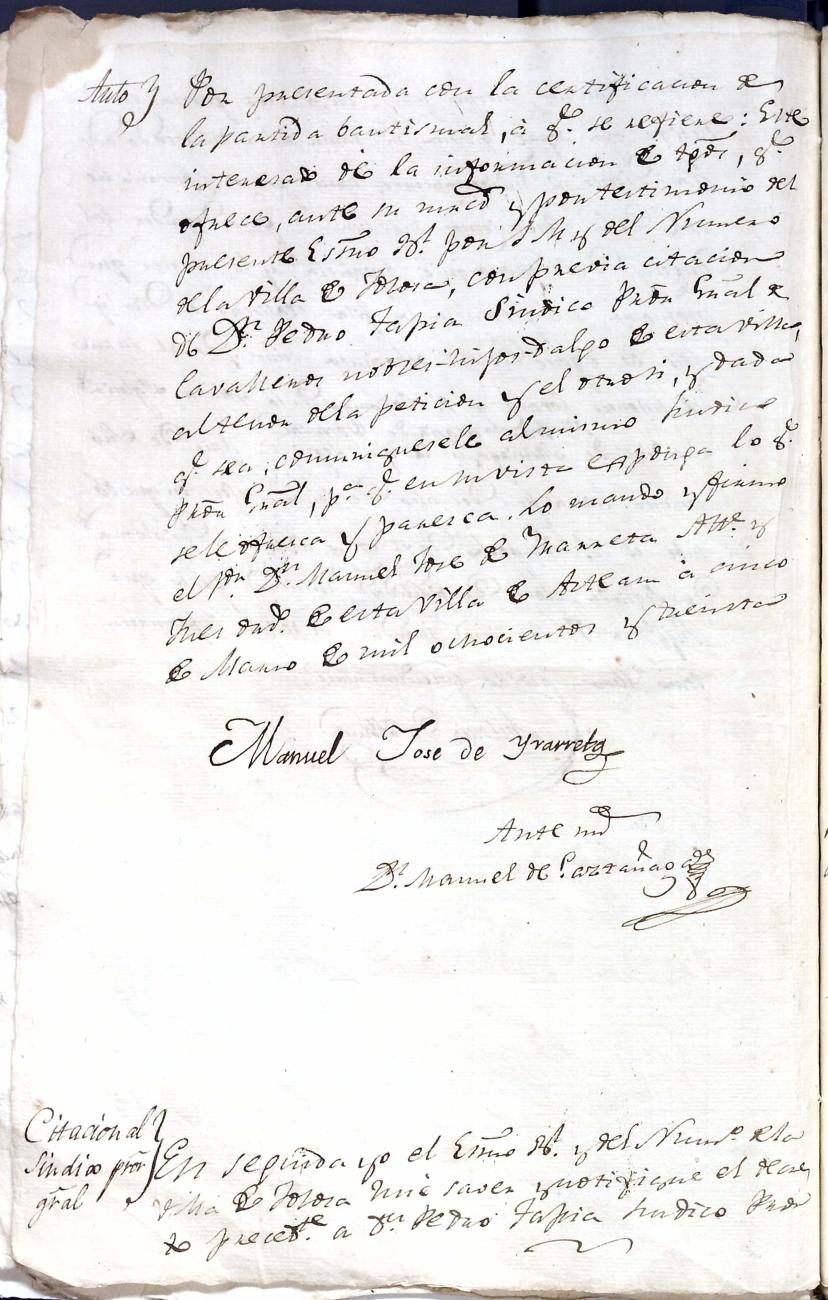 Auto
Por presentada con la certificacion de
la partida bautismal, á q.e se refiere: Este
interesado dé la informacion de tgõs, q.e
ofrece, ante su mrcd y por testimonio del
presente Esño Rl. por S M y del Numero
de la Villa de Tolosa, con previa citacion
de Dn. Pedro Tapia Sindico Prõr Gñal de
Cavalleros nobles-hijos-dalgo de esta villa,
al tenor de la peticion y el otrosi, y dada
q.e sea, comuniquesele al mismo Sindico
Prõr Gñal, pa. q.e en su vista esponga lo q.e
se le ofrezca y parezca. Lo mando y firmo
el Sõr Dn. Manuel Jose de Yrarreta Alle. y
Juez ord.o de esta Villa de Asteasu á cinco
de Marzo de mil ochocientos y treinta
Manuel Jose de Yrarreta
Ante mi
Dn. Manuel de Costañaga
Citacion al
Sindico prõr
gral
En seguida yo el Esño Rl. y del Num.o de la
villa de Tolosa hice saver y notifique el decre
to preced.te a Dn Pedro Tapia Sindico Prõr